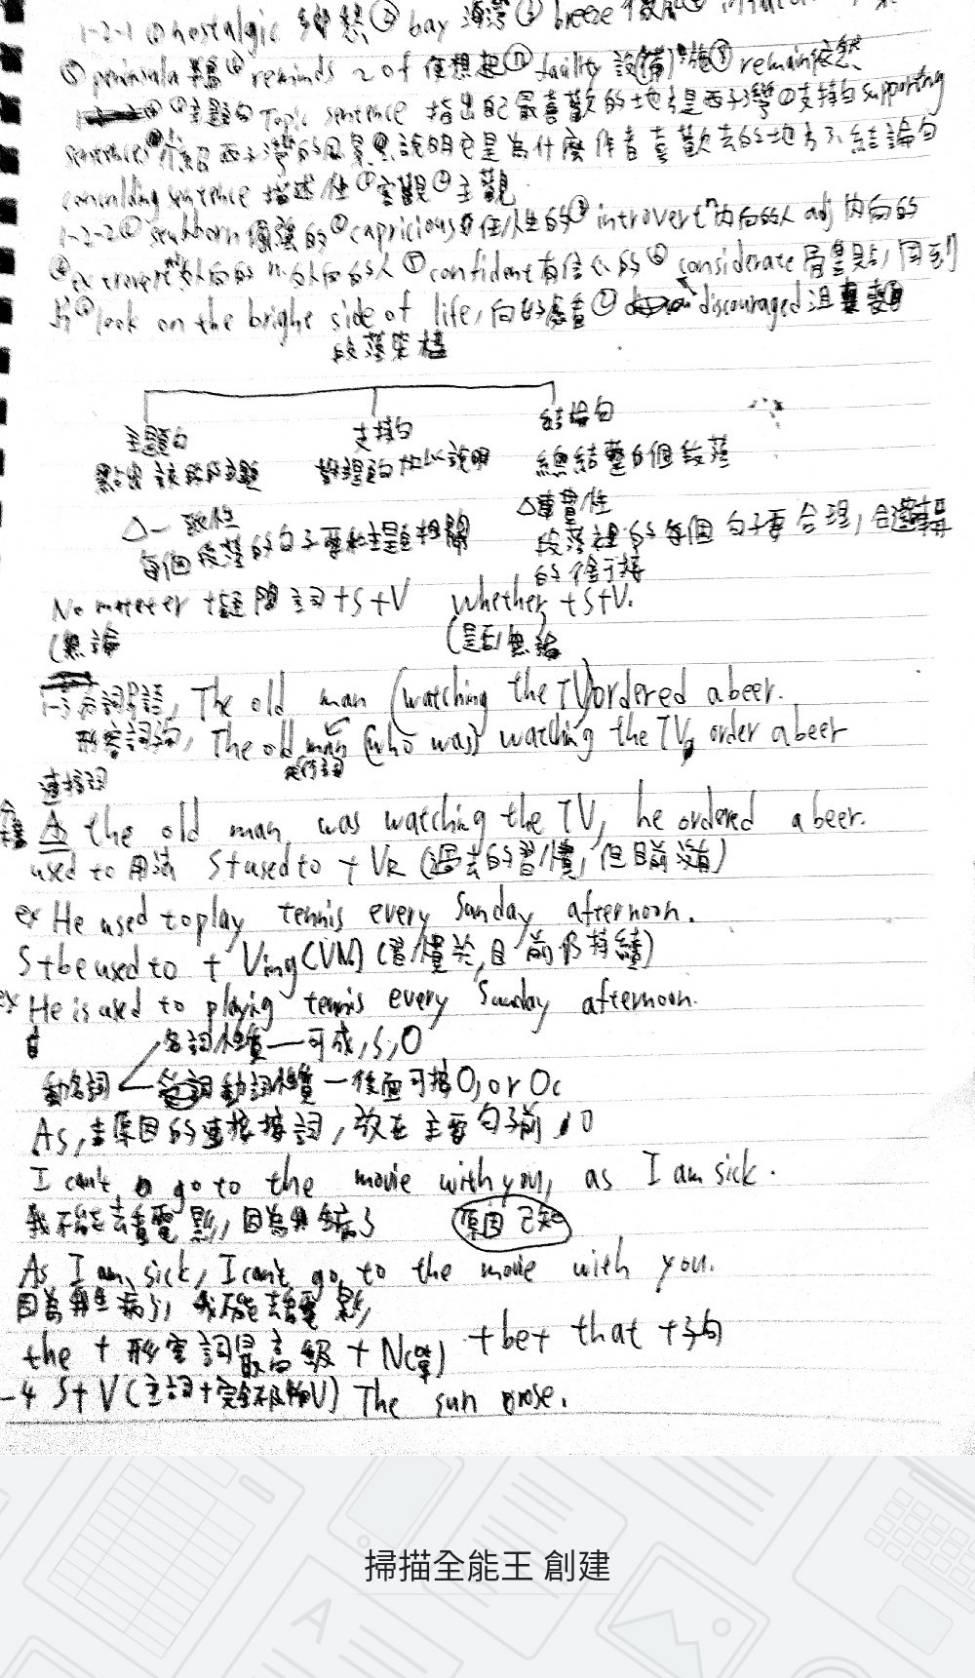 1-2-1 ① nostalgic 鄉愁 ② bay 海灣 ③ breeze 微風
⑤ peninsula 半島 ⑥ reminds 2 of 使想起 ⑦ facility 設備 設施 ⑧ remain 依然
①主題句 Topic sentence 指出自己最喜歡的地方是西子灣 ②支持句 supporting
sentences 介紹西子灣的風景 說明它是為什麼作者喜歡去的地方 結論句
concluding sentence 描述性 ①客觀 ②主觀
1-2-2 ① stubborn 倔強的 ② capricious 任性的 ③ introvert n 內向的人 adj 內向的
④ extrovert 外向的 n. 外向的人 ⑤ confident 有信心的 ⑥ considerate 周到
的 look on the bright side of life, 向好處看 discouraged 沮喪
段落架構
主題句 支持句 結論句
點出該段的主題 對主題句加以說明 總結整個段落
△一致性 △連貫性
每個段落的句子要和主題相關 段落裡的每個句子要合理,合邏輯
的銜接
No mateter +疑問詞+S+V whether +S+V.
(無論 (是否/無論
1-3 分詞片語, The old man (watching the TV) ordered a beer.
形容詞句, The old man (who was) watching the TV, order a beer
先行詞
連接詞
As the old man was watching the TV, he ordered a beer.
used to 用法 S+used to + VR (過去的習慣, 但目前沒有)
ex He used to play tennis every Sunday afternoon.
S+be used to + Ving (習慣於,目前仍持續)
ex He is used to playing tennis every Sunday afternoon.
名詞性質—可成,S,O
動名詞 動詞性質—後面可接O, or Oc
As, 表原因的連接詞, 放在主要句子前
I can't go to the movie with you, as I am sick.
我不能去看電影, 因為我生病了 原因已知
As I am sick, I can't go to the movie with you.
因為我生病了, 我不能去看電影
the + 形容詞最高級 + N(單) + be + that + 子句
-4 S+V(主詞+完全不及物V) The sun rose.
掃描全能王 創建